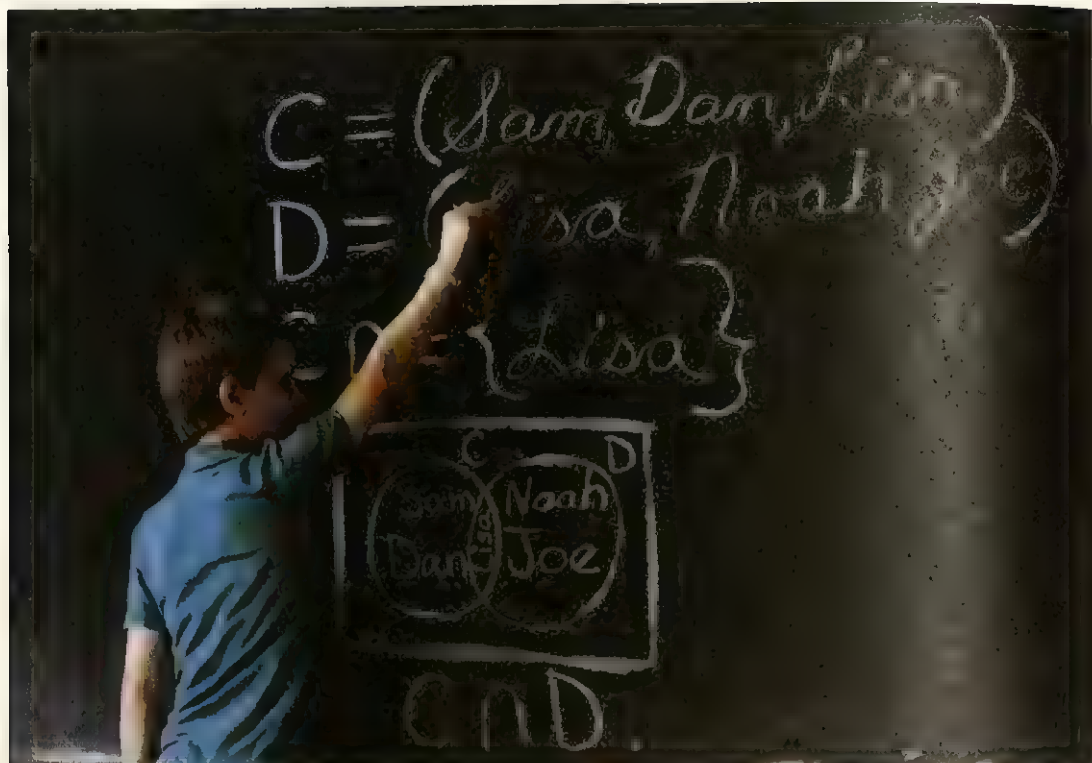 C = (Sam, Dan, Lisa)
D = (Lisa, Noah, Joe)
C ∩ = {Lisa}
C D
Sam Lisa Noah
Dan Joe
C ∩ D